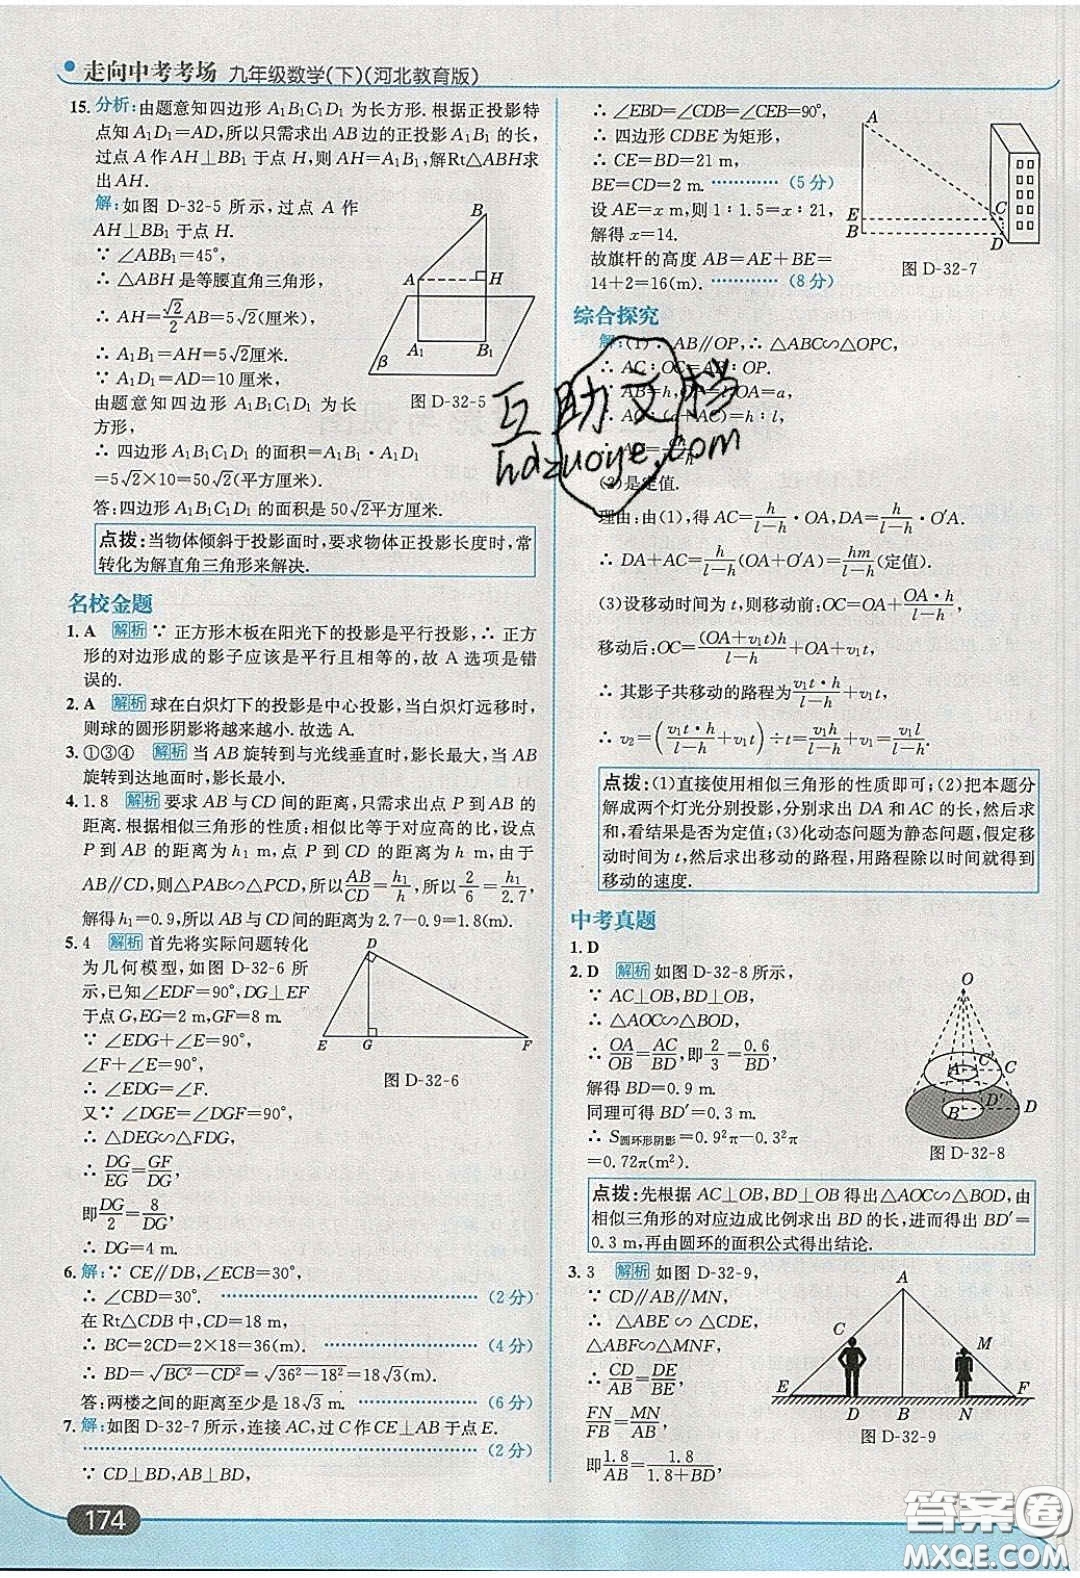 走向中考考场 九年级数学(下)(河北教育版)
15.分析:由题意知四边形 A₁B₁C₁D₁ 为长方形.根据正投影特
点知 A₁D₁=AD,所以只需求出 AB 边的正投影 A₁B₁ 的长,
过点 A 作 AH⊥BB₁ 于点 H,则 AH=A₁B₁,解Rt△ABH求
出AH.
解:如图 D-32-5 所示,过点 A 作
AH⊥BB₁ 于点 H.
∵ ∠ABB₁=45°,
∴ △ABH 是等腰直角三角形,
∴ AH=√2/2 AB=5√2(厘米),
∴ A₁B₁=AH=5√2厘米.
∵ A₁D₁=AD=10 厘米,
由题意知四边形 A₁B₁C₁D₁ 为长
方形,
∴ 四边形 A₁B₁C₁D₁ 的面积=A₁B₁·A₁D₁
=5√2×10=50√2(平方厘米).
答:四边形 A₁B₁C₁D₁ 的面积是 50√2平方厘米.
B
A
H
A₁
B₁
β
图 D-32-5
点拨:当物体倾斜于投影面时,要求物体正投影长度时,常
转化为解直角三角形来解决.
名校金题
1. A 解析 ∵ 正方形木板在阳光下的投影是平行投影,∴ 正方
形的对边形成的影子应该是平行且相等的,故 A 选项是错
误的.
2. A 解析 球在白炽灯下的投影是中心投影,当白炽灯远移时,
则球的圆形阴影将越来越小.故选 A.
3. ①③④ 解析 当 AB 旋转到与光线垂直时,影长最大,当 AB
旋转到达地面时,影长最小.
4. 1.8 解析 要求 AB 与 CD 间的距离,只需求出点 P 到 AB 的
距离.根据相似三角形的性质:相似比等于对应高的比,设点
P 到 AB 的距离为 h₁ m,点 P 到 CD 的距离为 h m,由于
AB∥CD,则△PAB∽△PCD,所以AB/CD=h₁/h,所以2/6=h₁/2.7,
解得 h₁=0.9,所以 AB 与 CD 间的距离为 2.7-0.9=1.8(m).
5. 4 解析 首先将实际问题转化
为几何模型,如图 D-32-6 所
示,已知∠EDF=90°,DG⊥EF
于点 G,EG=2 m,GF=8 m.
∵ ∠EDG+∠E=90°,
∠F+∠E=90°,
∴ ∠EDG=∠F.
又∵ ∠DGE=∠DGF=90°,
∴ △DEG∽△FDG,
∴ DG/EG=GF/DG,
即DG/2=8/DG,
∴ DG=4 m.
D
E
G
F
图 D-32-6
6.解:∵ CE∥DB,∠ECB=30°,
∴ ∠CBD=30°. (2 分)
在 Rt△CDB 中,CD=18 m,
∴ BC=2CD=2×18=36(m). (4 分)
∴ BD=√(BC²-CD²)=√(36²-18²)=18√3(m).
答:两楼之间的距离至少是 18√3 m. (6 分)
7.解:如图 D-32-7 所示,连接 AC,过 C 作 CE⊥AB 于点 E.
(2 分)
∵ CD⊥BD,AB⊥BD,
∴ ∠EBD=∠CDB=∠CEB=90°,
∴ 四边形 CDBE 为矩形,
∴ CE=BD=21 m,
BE=CD=2 m. (5 分)
设 AE=x m,则 1∶1.5=x∶21,
解得 x=14.
故旗杆的高度 AB=AE+BE=
14+2=16(m). (8 分)
A
E
B
C
D
图 D-32-7
综合探究
解:(1)∵ AB∥OP,∴ △ABC∽△OPC,
∴ AC∶OC=AB∶OP.
∵ AB=h,OP=l,OA=a,
∴ AC∶(a+AC)=h∶l,
(2)是定值.
理由:由(1),得 AC=h/(l-h)·OA,DA=h/(l-h)·O′A.
∴ DA+AC=h/(l-h)(OA+O′A)=hm/(l-h)(定值).
(3)设移动时间为 t,则移动前:OC=OA+OA·h/(l-h),
移动后:OC=(OA+v₁t)h/(l-h)+OA+v₁t,
∴ 其影子共移动的路程为v₁t·h/(l-h)+v₁t,
∴ v₂=(v₁t·h/(l-h)+v₁t)÷t=v₁h/(l-h)+v₁=v₁l/(l-h).
点拨:(1)直接使用相似三角形的性质即可;(2)把本题分
解成两个灯光分别投影,分别求出 DA 和 AC 的长,然后求
和,看结果是否为定值;(3)化动态问题为静态问题,假定移
动时间为 t,然后求出移动的路程,用路程除以时间就得到
移动的速度.
中考真题
1. D
2. D 解析 如图 D-32-8 所示,
∵ AC⊥OB,BD⊥OB,
∴ △AOC∽△BOD,
∴ OA/OB=AC/BD,即2/3=0.6/BD,
解得 BD=0.9 m.
同理可得 BD′=0.3 m,
∴ S圆环形阴影=0.9²π-0.3²π
=0.72π(m²).
O
A
C′
C
B
D′
D
图 D-32-8
点拨:先根据 AC⊥OB,BD⊥OB 得出△AOC∽△BOD,由
相似三角形的对应边成比例求出 BD 的长,进而得出 BD′=
0.3 m,再由圆环的面积公式得出结论.
3. 3 解析 如图 D-32-9,
∵ CD∥AB∥MN,
∴ △ABE∽△CDE,
△ABF∽△MNF,
∴ CD/AB=DE/BE,
FN/FB=MN/AB,
即1.8/AB=1.8/(1.8+BD),
A
C
M
E
D
B
N
F
图 D-32-9
互助文档
hdzuoye.com
174
答案圈
MXQE.COM